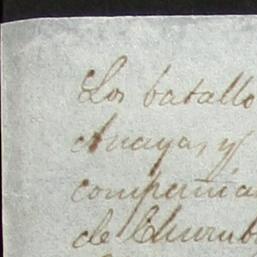 Los batallo
Anaya, y
compañia
de Churub